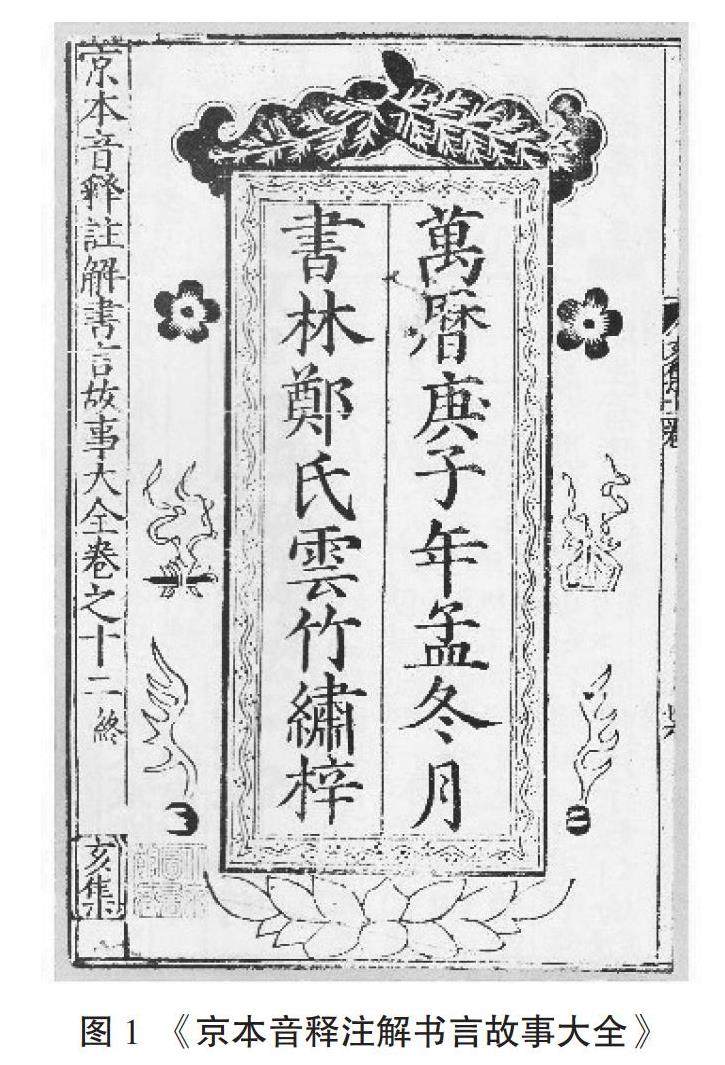 萬曆庚子年孟冬月
書林鄭氏雲竹繡梓
京本音釋註解書言故事大全卷之十二 終
亥集
图 1 《京本音释注解书言故事大全》